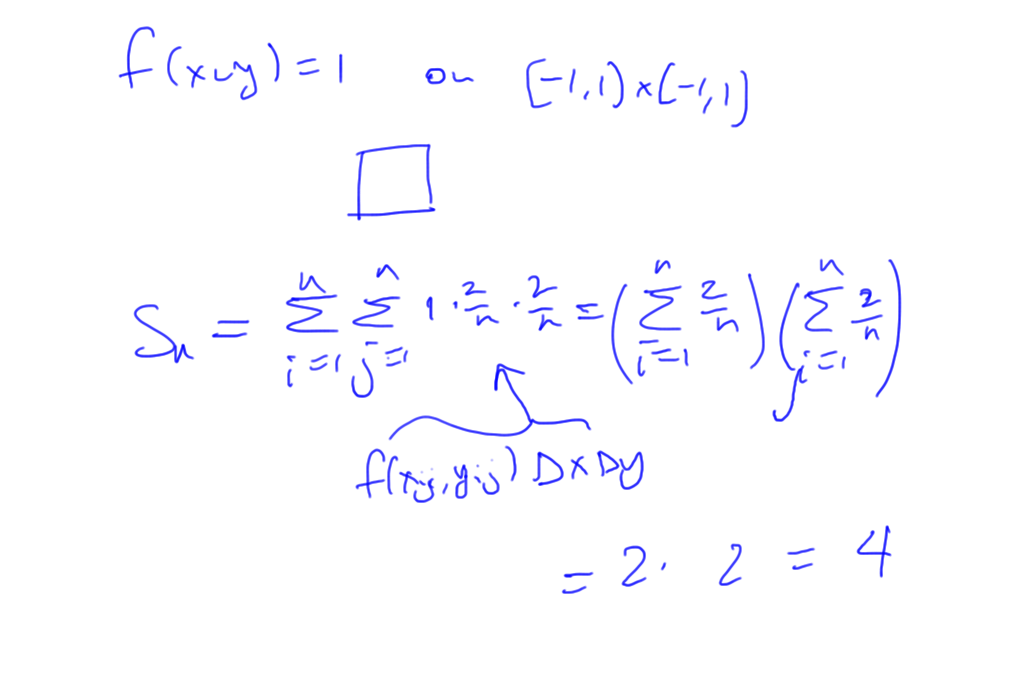 f(x,y) = 1 on [-1,1) × [-1,1]
Sₙ = ∑ᵢ₌₁ⁿ ∑ⱼ₌₁ⁿ 1 · 2/n · 2/n = (∑ᵢ₌₁ⁿ 2/n) (∑ⱼ₌₁ⁿ 2/n)
f(xᵢⱼ, yᵢⱼ) Δx Δy
= 2 · 2 = 4